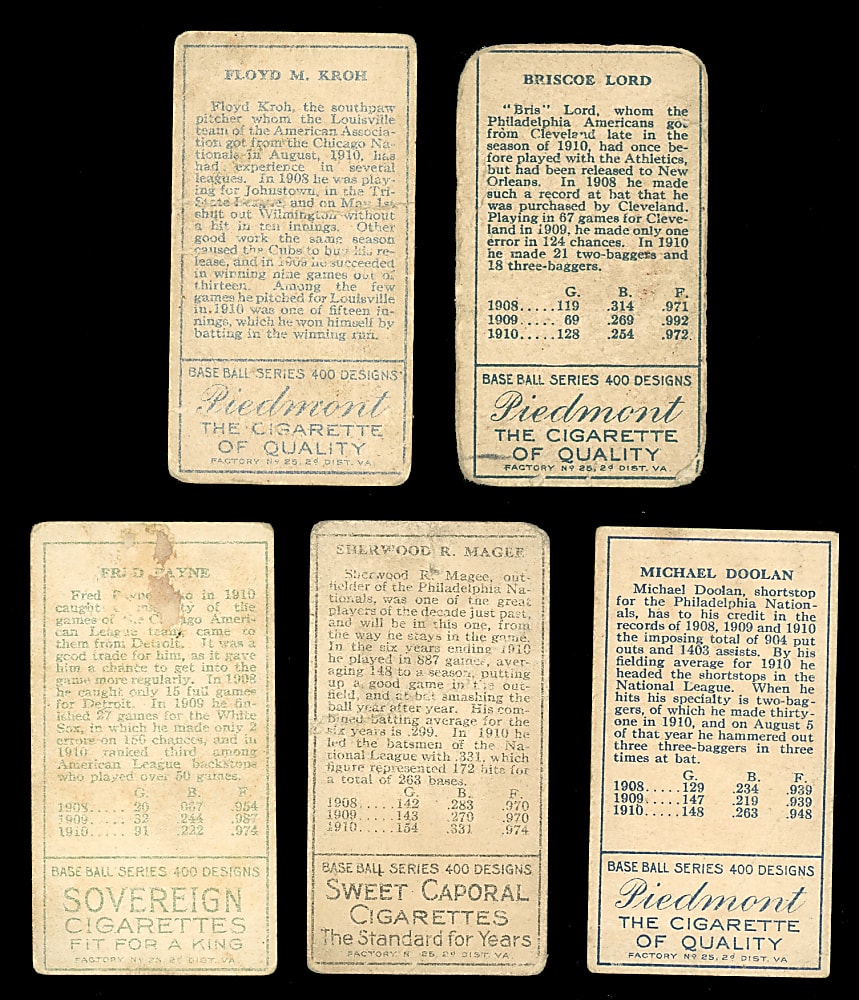 FLOYD M. KROH
Floyd Kroh, the southpaw
pitcher whom the Louisville
team of the American Associa-
tion got from the Chicago Na-
tionals in August, 1910, has
had experience in several
leagues. In 1908 he was play-
ing for Johnstown, in the Tri-
State League, and on May 1st
shut out Wilmington without
a hit in ten innings. Other
good work the same season
caused the Cubs to buy his re-
lease, and in 1909 he succeeded
in winning nine games out of
thirteen. Among the few
games he pitched for Louisville
in 1910 was one of fifteen in-
nings, which he won himself by
batting in the winning run.
BASE BALL SERIES 400 DESIGNS
Piedmont
THE CIGARETTE
OF QUALITY
FACTORY No 25, 2d DIST. VA.
BRISCOE LORD
"Bris" Lord, whom the
Philadelphia Americans got
from Cleveland late in the
season of 1910, had once be-
fore played with the Athletics,
but had been released to New
Orleans. In 1908 he made
such a record at bat that he
was purchased by Cleveland.
Playing in 67 games for Cleve-
land in 1909, he made only one
error in 124 chances. In 1910
he made 21 two-baggers and
18 three-baggers.
G. B. F.
1908.....119 .314 .971
1909..... 69 .269 .992
1910.....128 .254 .972
BASE BALL SERIES 400 DESIGNS
Piedmont
THE CIGARETTE
OF QUALITY
FACTORY No 25, 2d DIST. VA.
FRED PAYNE
Fred Payne, who in 1910
caught of the
games of the Chicago Ameri-
can League team, came to
them from Detroit. It was a
good trade for him, as it gave
him a chance to get into the
game more regularly. In 1908
he caught only 15 full games
for Detroit. In 1909 he fin-
ished 27 games for the White
Sox, in which he made only 2
errors on 156 chances, and in
1910 ranked third among
American League backstops
who played over 50 games.
G. B. F.
1908..... 20 .067 .954
1909..... 32 .244 .987
1910..... 91 .222 .974
BASE BALL SERIES 400 DESIGNS
SOVEREIGN
CIGARETTES
FIT FOR A KING
FACTORY No 25, 2d DIST. VA.
SHERWOOD R. MAGEE
Sherwood R. Magee, out-
fielder of the Philadelphia Na-
tionals, was one of the great
players of the decade just past,
and will be in this one, from
the way he stays in the game.
In the six years ending 1910
he played in 887 games, aver-
aging 148 to a season, putting
up a good game in the out-
field, and at bat smashing the
ball year after year. His com-
bined batting average for the
six years is .299. In 1910 he
led the batsmen of the Na-
tional League with .331, which
figure represented 172 hits for
a total of 263 bases.
G. B. F.
1908.....142 .283 .970
1909.....143 .270 .970
1910.....154 .331 .974
BASE BALL SERIES 400 DESIGNS
SWEET CAPORAL
CIGARETTES
The Standard for Years
FACTORY N 25, 2d DIST. VA
MICHAEL DOOLAN
Michael Doolan, shortstop
for the Philadelphia Nation-
als, has to his credit in the
records of 1908, 1909 and 1910
the imposing total of 904 put
outs and 1403 assists. By his
fielding average for 1910 he
headed the shortstops in the
National League. When he
hits his specialty is two-bag-
gers, of which he made thirty-
one in 1910, and on August 5
of that year he hammered out
three three-baggers in three
times at bat.
G. B. F.
1908.....129 .234 .939
1909.....147 .219 .939
1910.....148 .263 .948
BASE BALL SERIES 400 DESIGNS
Piedmont
THE CIGARETTE
OF QUALITY
FACTORY No 25, 2d DIST. VA.